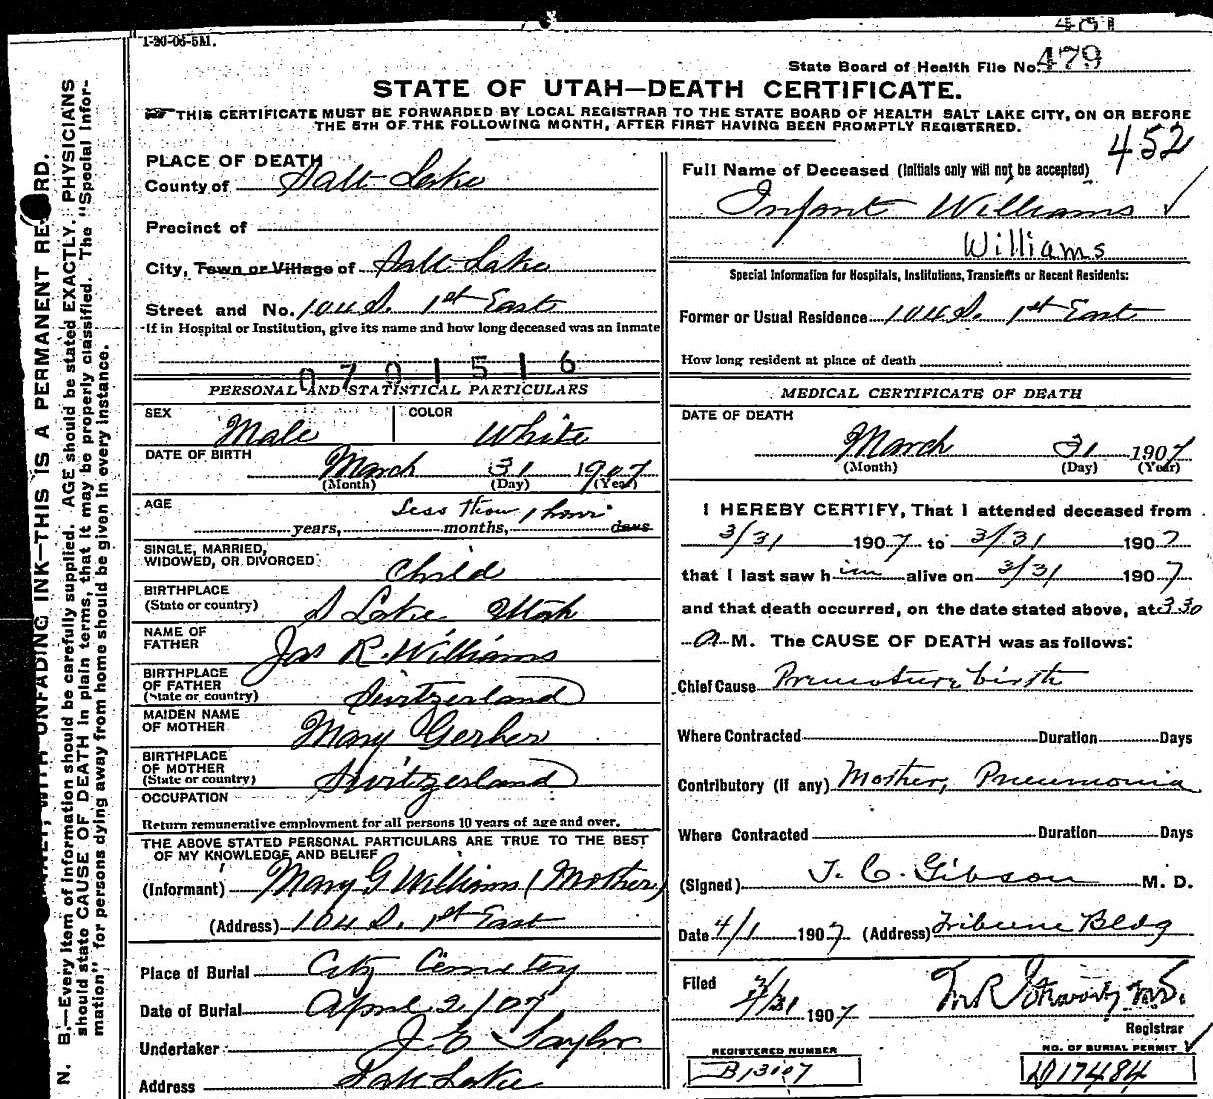 1-20-06-5M.
481
State Board of Health File No. 479
STATE OF UTAH—DEATH CERTIFICATE.
THIS CERTIFICATE MUST BE FORWARDED BY LOCAL REGISTRAR TO THE STATE BOARD OF HEALTH SALT LAKE CITY, ON OR BEFORE
THE 5TH OF THE FOLLOWING MONTH, AFTER FIRST HAVING BEEN PROMPTLY REGISTERED.
452
PLACE OF DEATH
County of Salt Lake
Precinct of
City, Town or Village of Salt Lake
Street and No. 104 S. 1st East
If in Hospital or Institution, give its name and how long deceased was an inmate
0701516
PERSONAL AND STATISTICAL PARTICULARS
SEX Male COLOR White
DATE OF BIRTH March 31 1907
(Month) (Day) (Year)
AGE Less than 1 hour
years, months, days
SINGLE, MARRIED,
WIDOWED, OR DIVORCED Child
BIRTHPLACE
(State or country) S Lake Utah
NAME OF
FATHER Jas R. Williams
BIRTHPLACE
OF FATHER
(State or country) Switzerland
MAIDEN NAME
OF MOTHER Mary Gerber
BIRTHPLACE
OF MOTHER
(State or country) Switzerland
OCCUPATION
Return remunerative employment for all persons 10 years of age and over.
THE ABOVE STATED PERSONAL PARTICULARS ARE TRUE TO THE BEST
OF MY KNOWLEDGE AND BELIEF
(Informant) Mary G Williams (Mother)
(Address) 104 S. 1st East
Place of Burial City Cemetery
Date of Burial April 2/07
Undertaker J. E Taylor
Address Salt Lake
Full Name of Deceased (Initials only will not be accepted)
Infant Williams
Williams
Special Information for Hospitals, Institutions, Transients or Recent Residents:
Former or Usual Residence 104 S. 1st East
How long resident at place of death
MEDICAL CERTIFICATE OF DEATH
DATE OF DEATH
March 31 1907
(Month) (Day) (Year)
I HEREBY CERTIFY, That I attended deceased from
3/31 1907 to 3/31 1907
that I last saw him alive on 3/31 1907
and that death occurred, on the date stated above, at 3 30
a M. The CAUSE OF DEATH was as follows:
Chief Cause Premature birth
Where Contracted Duration Days
Contributory (if any) Mother, Pneumonia
Where Contracted Duration Days
(Signed) J. C. Gibson M. D.
Date 4/1 1907 (Address) Tribune Bldg
Filed 1907 M.D.
Registrar
REGISTERED NUMBER
B13107
NO. OF BURIAL PERMIT
D17484
WITH UNFADING INK—THIS IS A PERMANENT RECORD.
N. B.—Every item of information should be carefully supplied. AGE should be stated EXACTLY. PHYSICIANS
should state CAUSE OF DEATH in plain terms, that it may be properly classified. The "Special Infor-
mation" for persons dying away from home should be given in every instance.